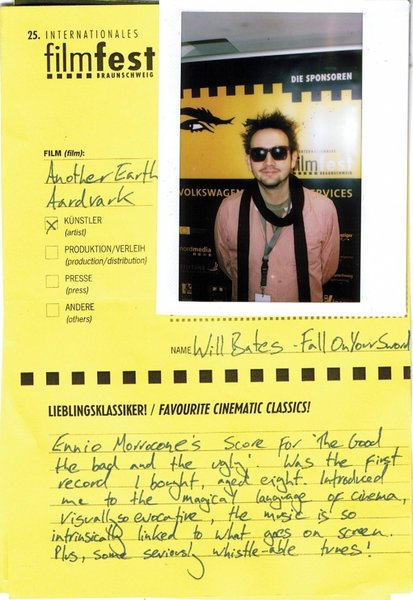 25. INTERNATIONALES
filmfest
BRAUNSCHWEIG
DIE SPONSOREN
filmfest
BRAUNSCHWEIG
VOLKSWAGEN
SERVICES
nordmedia
FILM (film):
Another Earth
Aardvark
KÜNSTLER
(artist)
PRODUKTION/VERLEIH
(production/distribution)
PRESSE
(press)
ANDERE
(others)
NAME Will Bates - Fall On Your Sword
LIEBLINGSKLASSIKER! / FAVOURITE CINEMATIC CLASSICS!
Ennio Morrocone's Score for 'The Good
the bad and the ugly'. Was the first
record I bought, aged eight. Introduced
me to the magical language of cinema,
visually so evocative, the music is so
intrinsically linked to what goes on screen.
Plus, some seriously whistle-able tunes!